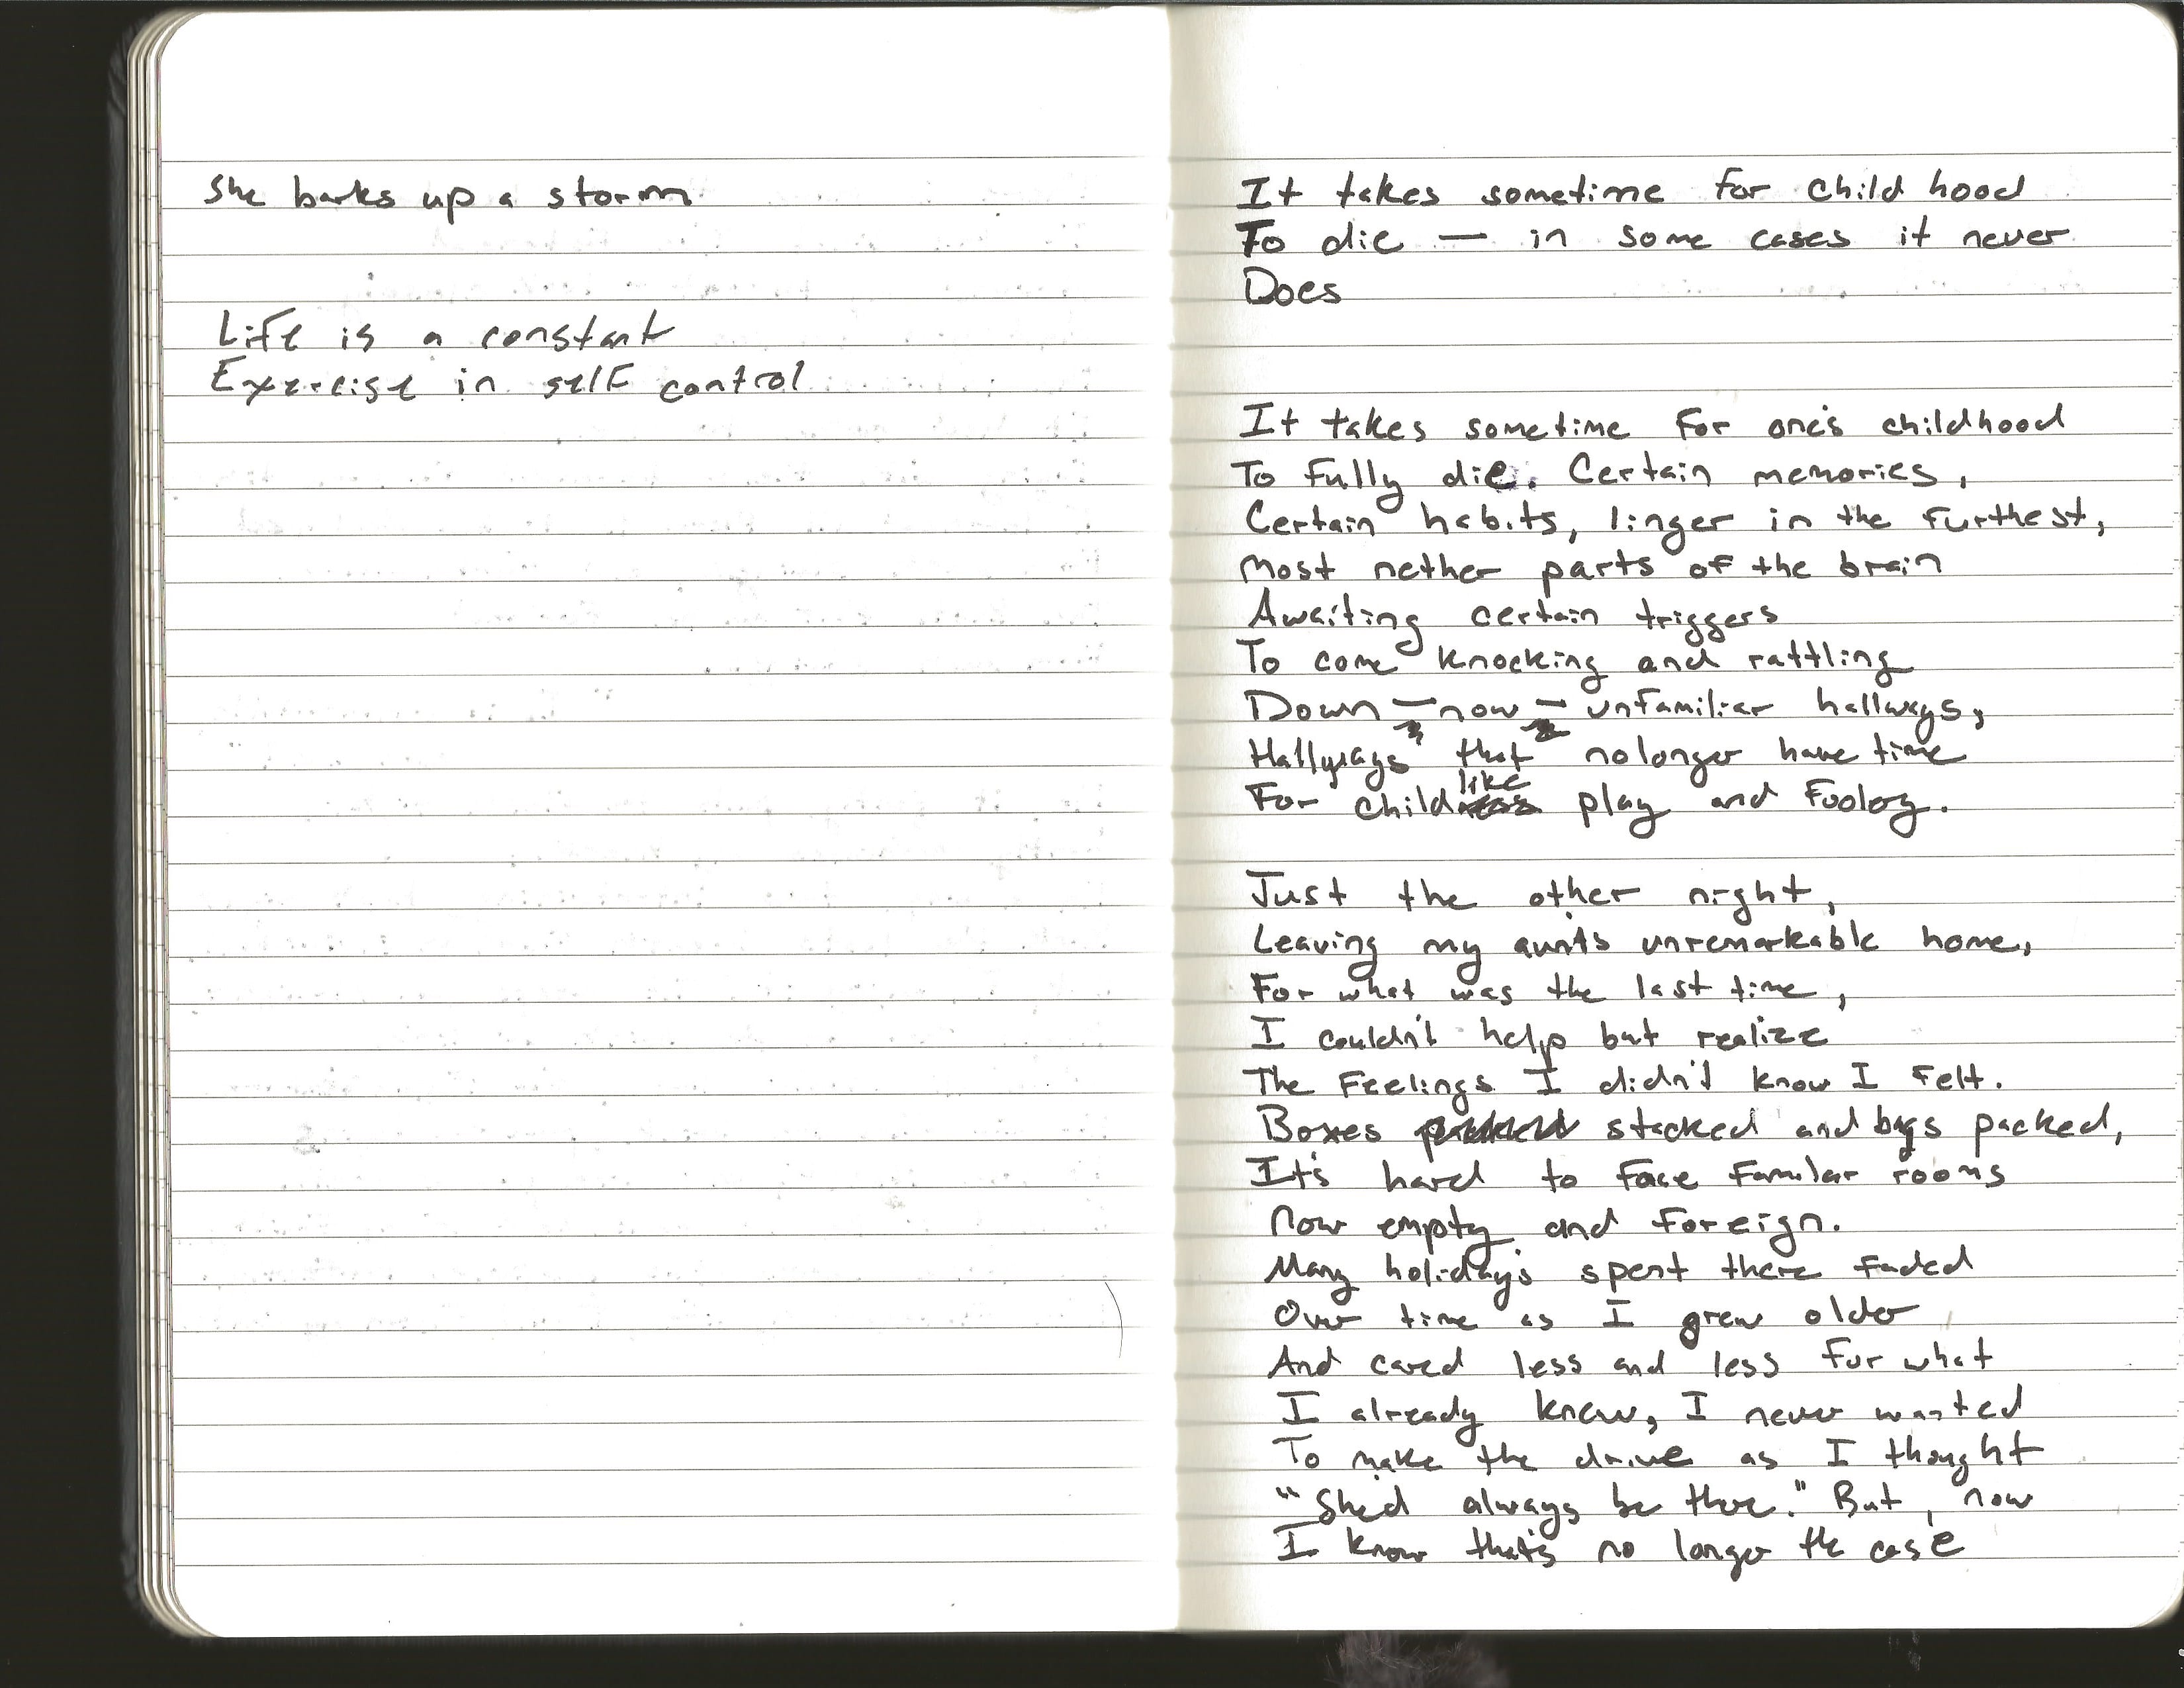 She barks up a storm
Life is a constant
Exercise in self control
It takes sometime for child hood
To die — in some cases it never
Does
It takes sometime for one's childhood
To fully die. Certain memories,
Certain habits, linger in the furthest,
Most nether parts of the brain
Awaiting certain triggers
To come knocking and rattling
Down — now — unfamiliar hallways,
Hallways that no longer have time
For childlike play and
Just the other night,
Leaving my aunt's unremarkable home,
For what was the last time,
I couldn't help but realize
The feelings I didn't know I felt.
Boxes stacked and bags packed,
It's hard to face familar rooms
Now empty and foreign.
Many holiday's spent there faded
Over time as I grew older
And cared less and less for what
I already knew, I never wanted
To make the drive as I thought
"She'd always be there." But, now
I know that's no longer the case